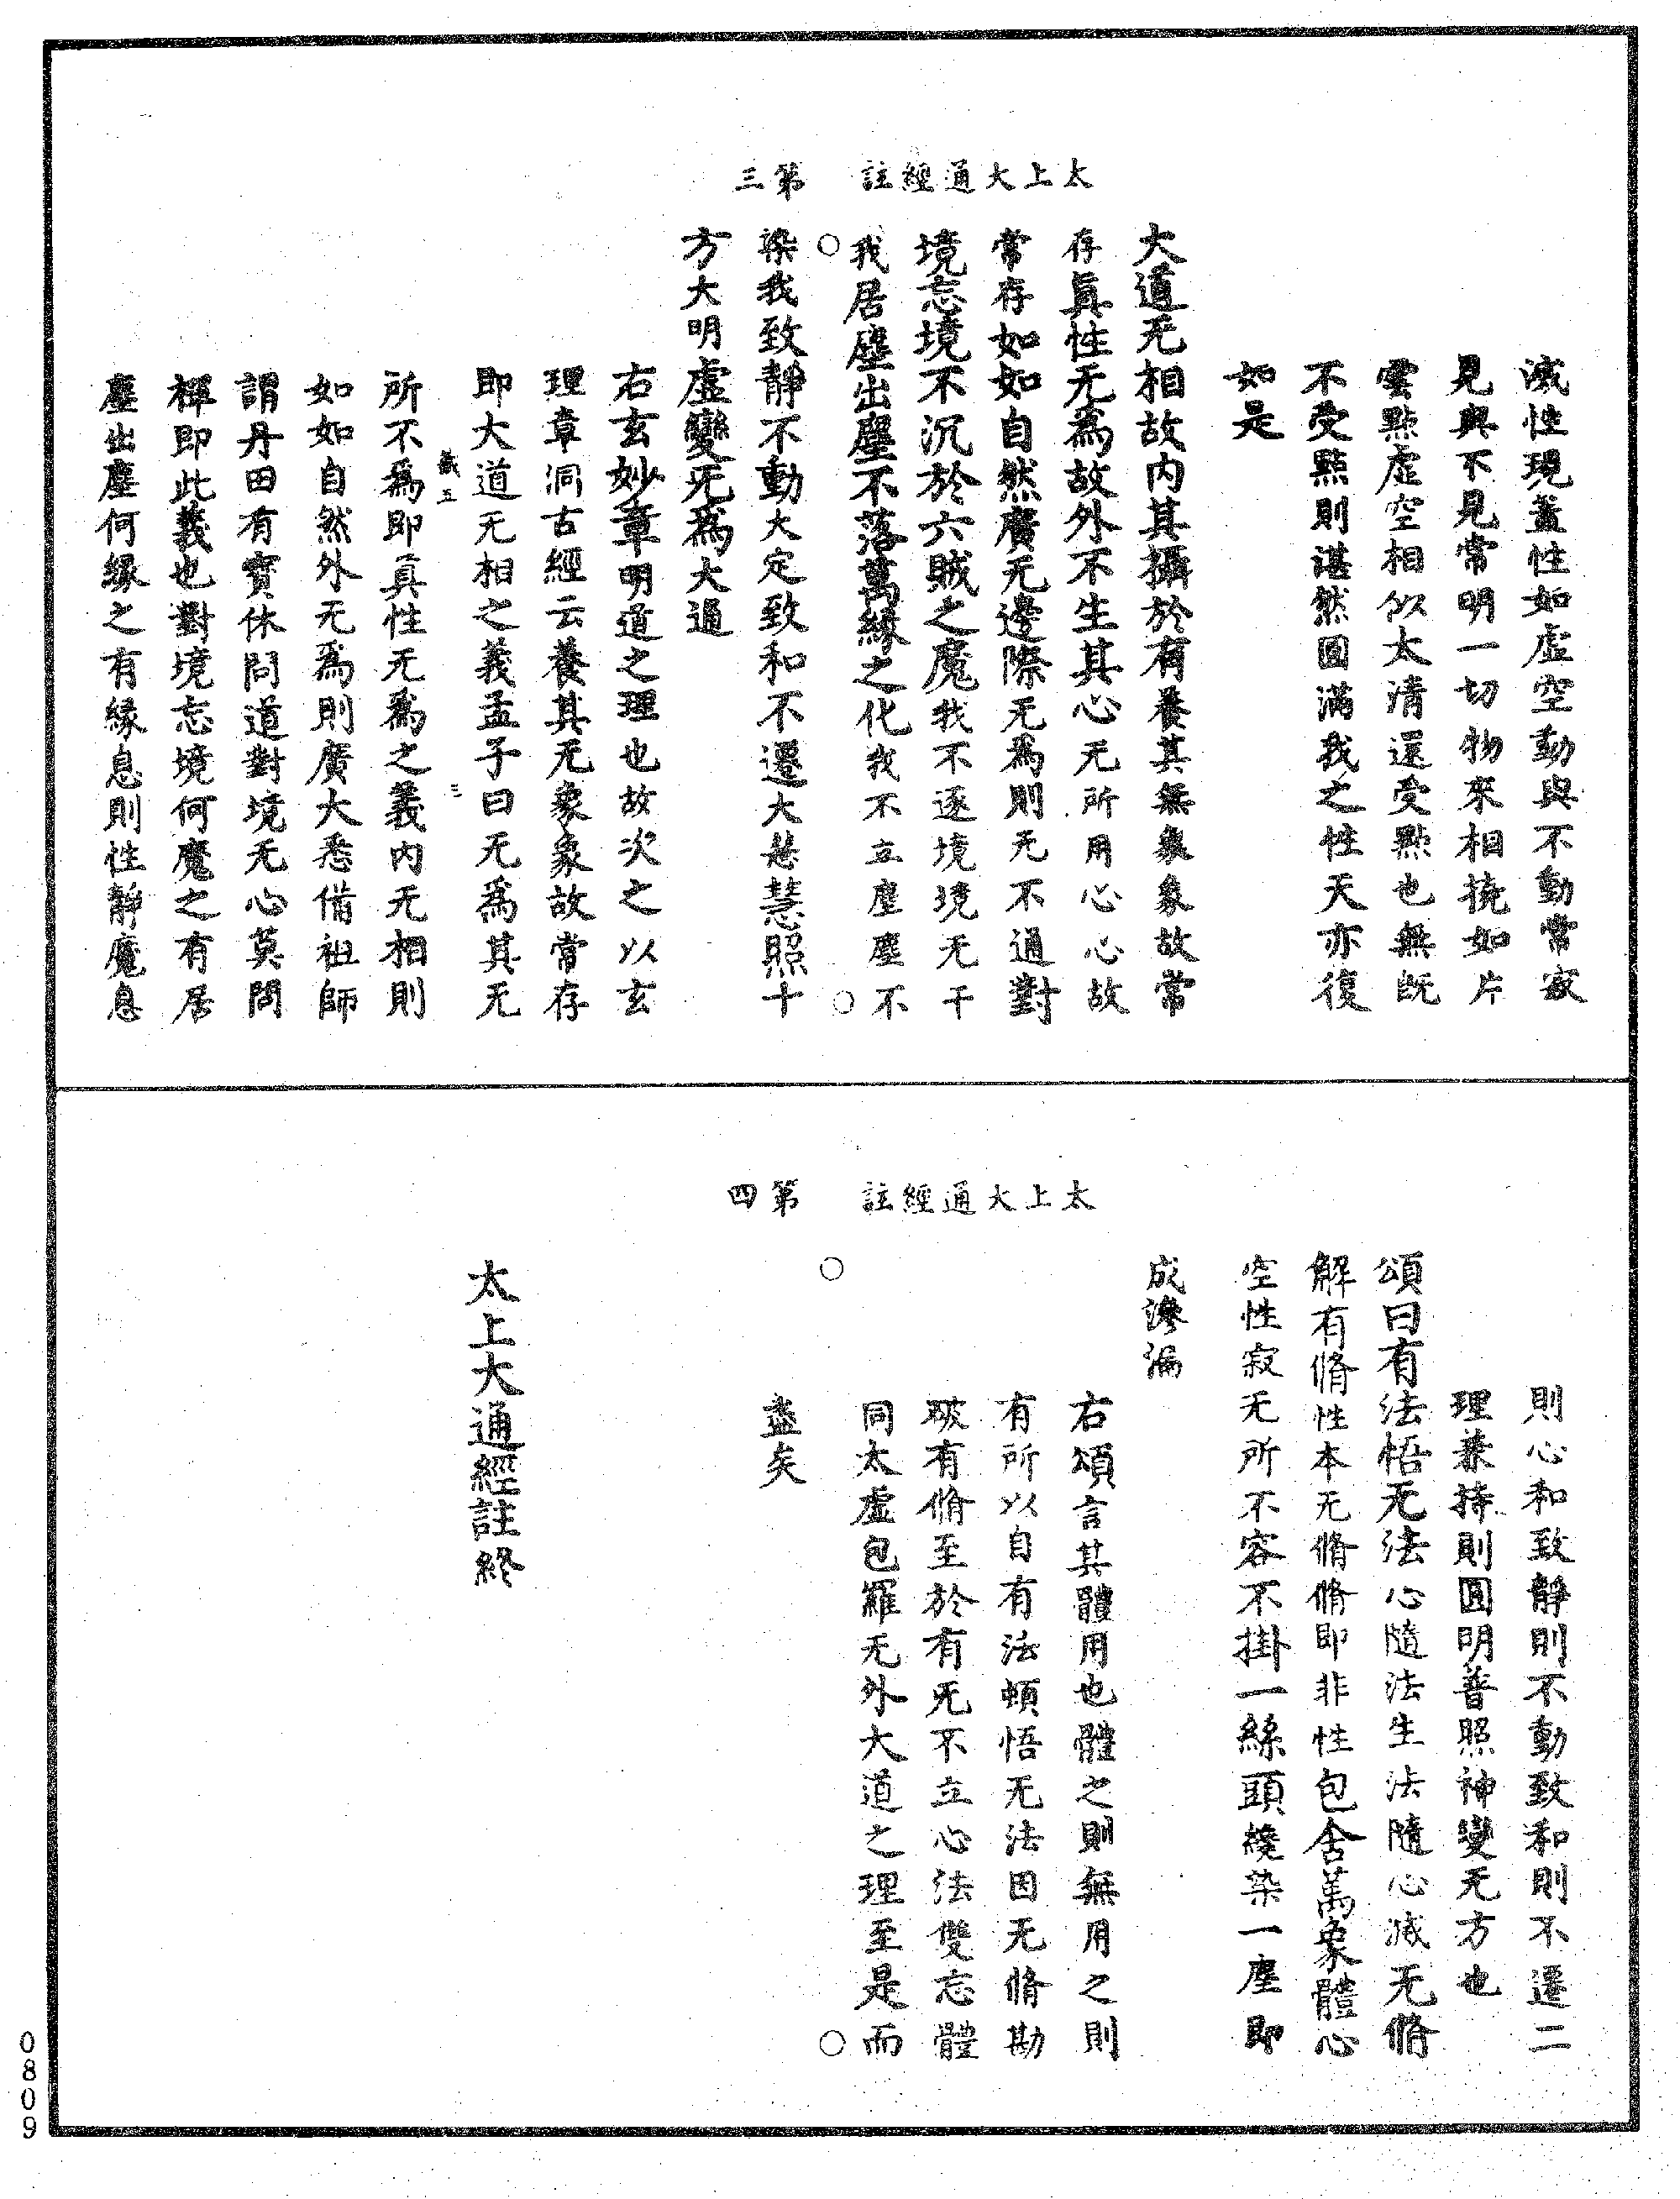 太上大通經註　第三
滅性現蓋性如虛空動與不動常寂
見與不見常明一切物來相撓如片
雲點虛空相似太清還受點也無既
不受點則湛然圓滿我之性天亦復
如是
大道无相故内其攝於有養其無象象故常
存真性无爲故外不生其心无所用心心故
常存如如自然廣无邊際无爲則无不通對
境忘境不沉於六賊之魔我不逐境境无干
我居塵出塵不落萬緣之化我不立塵塵不
染我致靜不動大定致和不遷大慈慧照十
方大明虛變无爲大通
右玄妙章明道之理也故次之以玄
理章洞古經云養其无象象故常存
即大道无相之義孟子曰无爲其无
義五　三
所不爲即真性无爲之義内无相則
如如自然外无爲則廣大悉備祖師
謂丹田有寶休問道對境无心莫問
禪即此義也對境忘境何魔之有居
塵出塵何緣之有緣息則性靜魔息
太上大通經註　第四
則心和致靜則不動致和則不遷二
理兼持則圓明普照神變无方也
頌曰有法悟无法心隨法生法隨心滅无脩
解有脩性本无脩脩即非性包含萬象體心
空性寂无所不容不掛一絲頭纔染一塵即
成滲漏
右頌言其體用也體之則無用之則
有所以自有法頓悟无法因无脩勘
破有脩至於有无不立心法雙忘體
同太虛包羅无外大道之理至是而
盡矣
太上大通經註終
0809